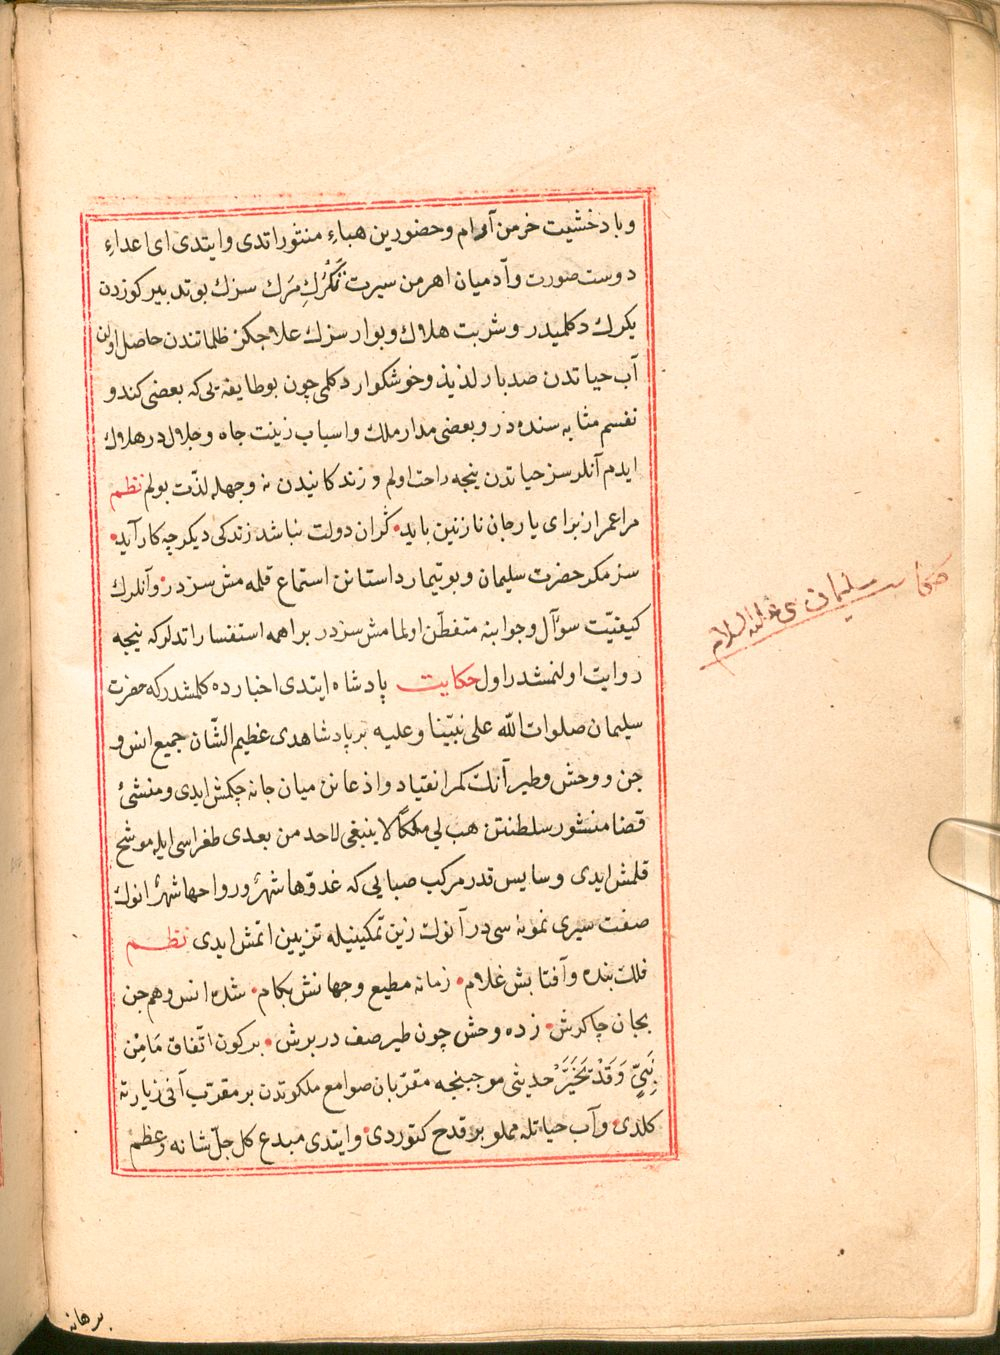 وباد خشيت خرمن آرام وحضورين هباءِ منثورا تدى وايتدى اى اعداءِ
دوست صورت وآدميان اهرمن سيرت نَگْرَكِ مَرَك سزك بو تدبير كوزدن
يكرك دكلميدر وشربت هلاك وبوار سزك علاجكز ظلماتندن حاصل اولن
آب حياتدن صد بار لذيذ وخوشكوار دكلمى چون بو طايفه يى كه بعضى كندو
نفسم مثابه سنده در وبعضى مدار ملك واسباب زينت جاه وجلالدر هلاك
ايدم آنلر سز حياتدن نيجه راحت اولم و زندكانيدن نه وجهله لذّت بولم نظم
مرا عمر از براى يار جان نازنين بايد • گر ان دولت نباشد زندكى ديكر چه كار آيد •
سز مكر حضرت سليمان و بوتيمار داستانن استماع قلمه مش سزدر • وآنلرك
كيفيّت سوآل وجوابنه متفطّن اولمامش سزدر براهمه استفسار اتدلركه نيجه
روايت اولنمشدر اول حكايت پادشاه ايتدى اخبارده كلمشدركه حضرت
سليمان صلوات الله على نبيّنا وعليه بر پادشاهدى عظيم الشّان جميع انس و
جن ووحش وطير آنك كمر انقياد واذعانن ميان جانه چكمش ايدى ومنشئ
قضا منشور سلطنتن هب لي ملكًا لا ينبغي لاحد من بعدى طغراسى ايله موشح
قلمش ايدى وسايس قدر مركب صبايى كه غدوّها شهرٌ ورواحها شهرٌ انوك
صفت سيرى نمونه سى در آنوك زين تمكينيله تزيين اتمش ايدى نظم
فلك بنده وآفتابش غلام • زمانه مطيع وجهانش بكام • شده انس وهم جن
بجان چاكرش • زده وحش چون طير صف در برش • بر كون اتفاق مَامِنْ
نَبِيٍّ وَقَدْ تَخَيَّرَ حديثى موجبنجه مقرّبان صوامع ملكوتدن بر مقرّب آنى زيارته
كلدى • وآب حياتله مملو بر قدح كتوردى • وايتدى مبدع كل جلّ شانه وعظم
برهانه
حكايت سليمان نبى عليه السلام